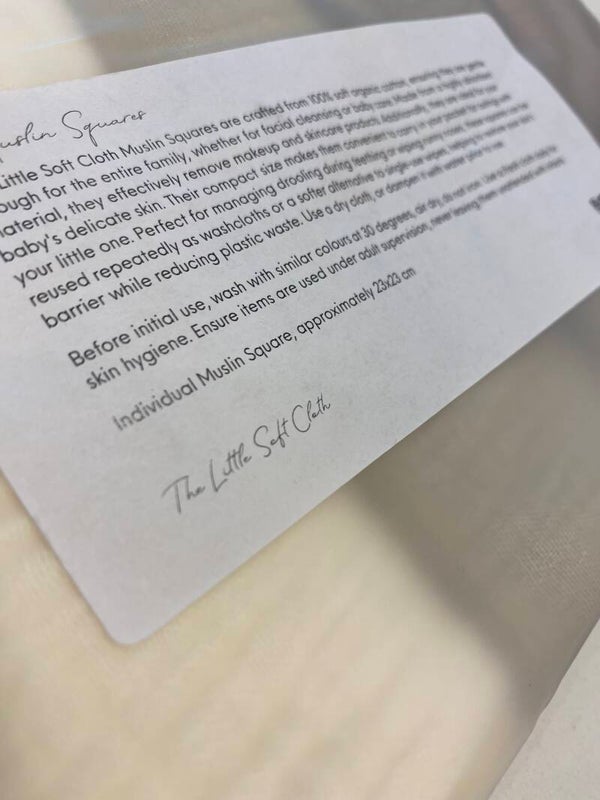 Muslin Squares
Little Soft Cloth Muslin Squares are crafted from 100% soft organic cotton, ensuring they are gentle
ough for the entire family, whether for facial cleaning or baby care. Made from a highly absorbent
aterial, they effectively remove makeup and skincare product. Additionally, they are ideal for your
baby's delicate skin. Their compact size makes them convenient to carry in your pocket for
your little one. Perfect for managing drooling during teething or wiping away
reused repeatedly as washcloths or a softer alternative to single-use wipes, helping to
barrier while reducing plastic waste. Use a dry cloth, or dampen it with water prior to use.
Before initial use, wash with similar colours at 30 degrees, air dry, do not iron. Use a fresh cloth
skin hygiene. Ensure items are used under adult supervision, never leaving them unattended with
Individual Muslin Square, approximately 23x23 cm
The Little Soft Cloth